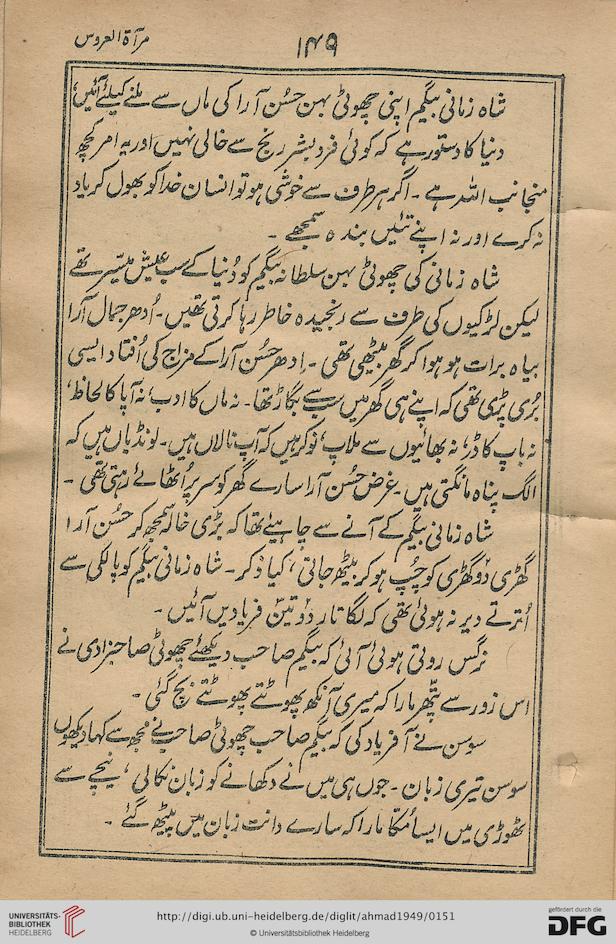 مرآۃ العروس
۱۴۹
شاہ زمانی بیگم اپنی چھوٹی بہن حسُن آرا کی ماں سے ملنے کیلئے آئیں،
دنیا کا دستور ہے کہ کوئی فرد بشر رنج سے خالی نہیں اور یہ امر کچھ
منجانب اللہ ہے ۔ اگر ہر طرف سے خوشی ہو تو انسان خدا کو بھول کر یاد
نہ کرے اور نہ اپنے تئیں بندہ سمجھے ۔
شاہ زمانی کی چھوٹی بہن سلطانہ بیگم کو دُنیا کے سب عیش میسّر تھے
لیکن لڑکیوں کی طرف سے رنجیدہ خاطر رہا کرتی تھیں ۔ اُدھر جمال آرا
بیاہ برات ہو ہوا کر گھر بیٹھی تھی ۔ اِدھر حسُن آرا کے مزاج کی اُفتاد ایسی
بُری پڑی تھی کہ اپنے ہی گھر میں سب سے بگاڑ تھا ۔ نہ ماں کا ادب، نہ آپا کا لحاظ،
نہ باپ کا ڈر، نہ بھائیوں سے ملاپ، نوکر ہیں کہ آپ نالاں ہیں ۔ لونڈیاں ہیں کہ
الگ پناہ مانگتی ہیں ۔ غرض حسُن آرا سارے گھر کو سر پر اُٹھائے رہتی تھی ۔
شاہ زمانی بیگم کے آنے سے چاہیئے تھا کہ بڑی خالہ سمجھ کر حسُن آرا
گھڑی دو گھڑی کو چپُ ہو کر بیٹھ جاتی، کیا ذکر ۔ شاہ زمانی بیگم کو پالکی سے
اُترتے دیر نہ ہوئی تھی کہ لگاتار دو تین فریادیں آئیں ۔
نرگس روتی ہوئی آئی کہ بیگم صاحب دیکھئے چھوٹی صاحبزادی نے
اس زور سے پتّھر مارا کہ میری آنکھ پھوٹتے پھوٹتے بچ گئی ۔
سوسن نے آ فریاد کی کہ بیگم صاحب چھوٹی صاحب نے مجھ سے کہا دیکھوں
سوسن تیری زبان ۔ جوں ہی میں نے دکھانے کو زبان نکالی، نیچے سے
ٹھوڑی میں ایسا مُکّا مارا کہ سارے دانت زبان میں بیٹھ گئے ۔
UNIVERSITÄTS-
BIBLIOTHEK
HEIDELBERG
http://digi.ub.uni-heidelberg.de/diglit/ahmad1949/0151
© Universitätsbibliothek Heidelberg
gefördert durch die
DFG